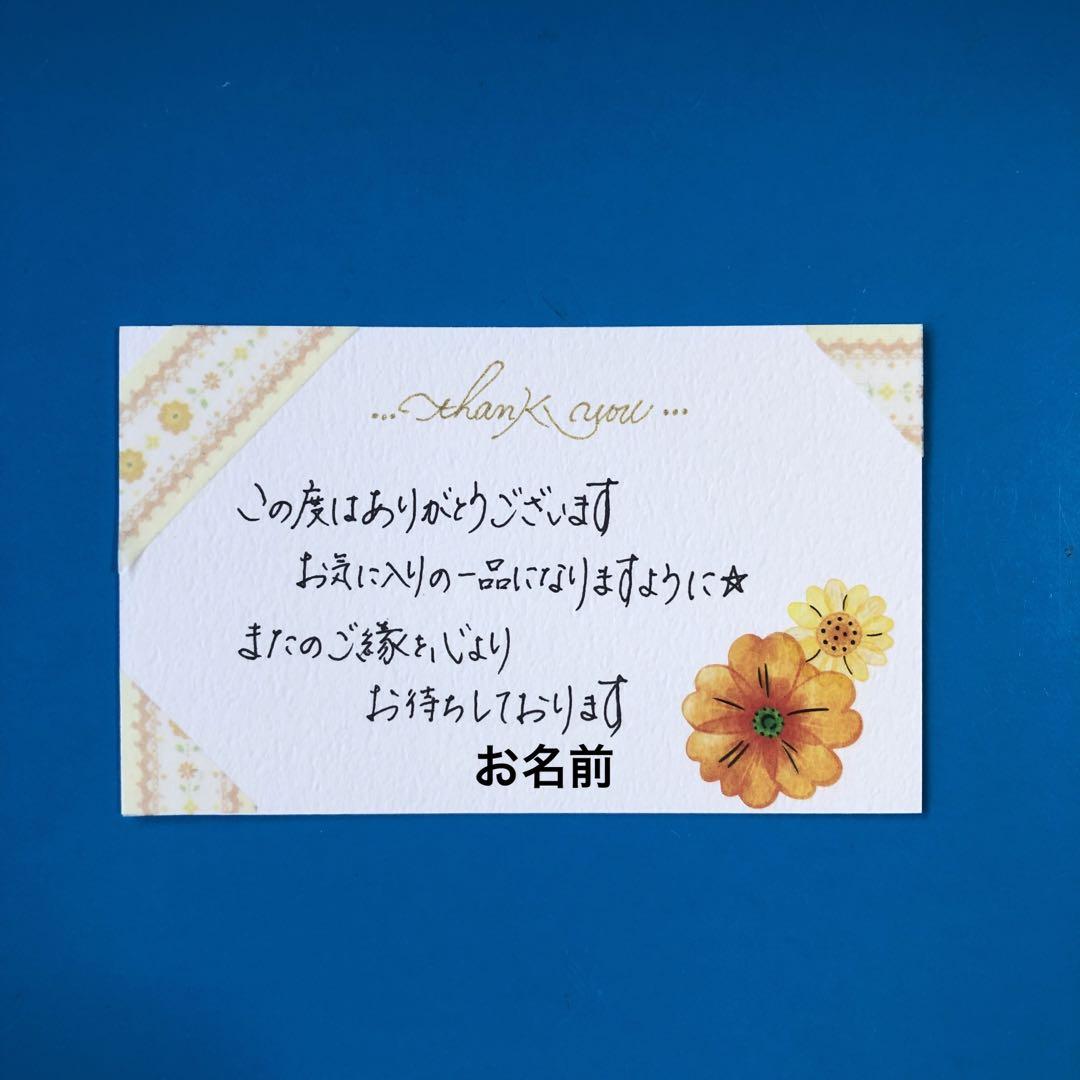 ...thank you...
この度はありがとうございます
お気に入りの一品になりますように☆
またのご縁を心より
お待ちしております
お名前